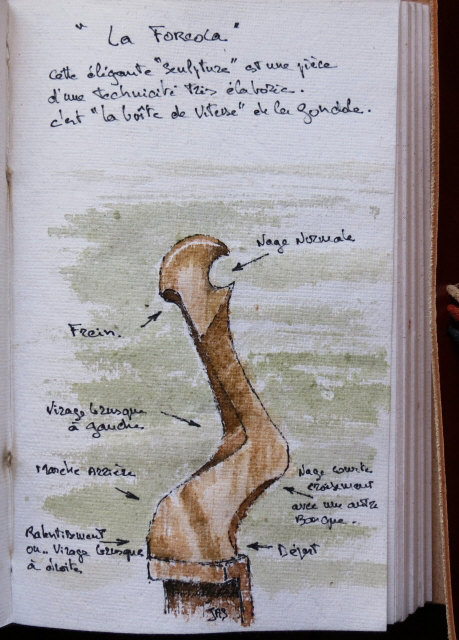 "La Forcola"
cette élégante "sculpture" est une pièce
d'une technicité très élaborée.
c'est "la boîte de vitesse" de la gondole.
Nage Normale
Frein.
Virage brusque
à gauche
Marche Arrière
Nage courte
croisement
avec une autre
Barque.
Ralentissement
ou Virage brusque
à droite.
Départ
JAB